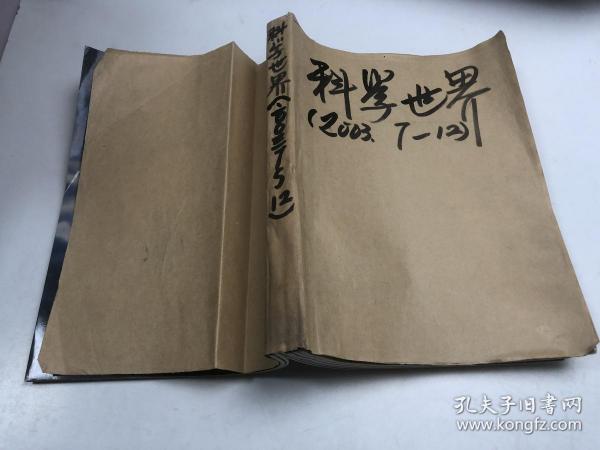 科学世界(二〇〇三7-512)
科學世界
(2003.7-12)
孔夫子旧书网
www.kongfz.com